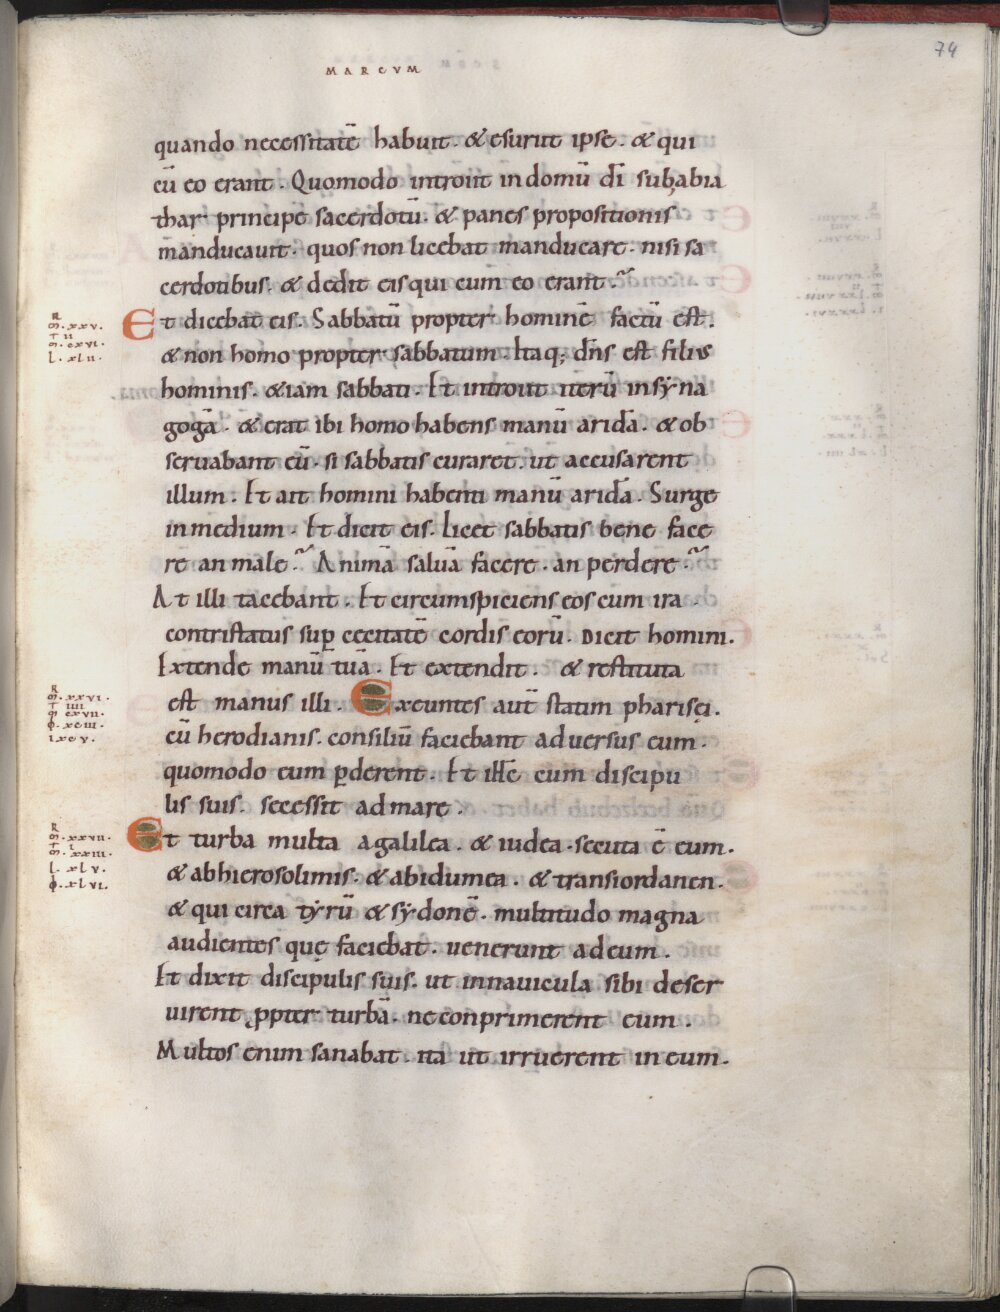 74
MARCVM
quando necessitatē habuit. & esuriit ipse. & qui
cū eo erant. Quomodo introiit in domū dī sub abia
thar principe sacerdotū. & panes propositionis
manducauit. quos non licebat manducare. nisi sa
cerdotibus. & dedit eis qui cum eo erant.
Et dicebat eis. Sabbatū propter hominē factū est.
& non homo propter sabbatum. Itaq; dn̄s est filius
hominis. &iam sabbati. Et introiuit iterū in syna
gogā. & erat ibi homo habens manū aridā. & ob
seruabant eū. si sabbatis curaret. ut accusarent
illum. Et ait homini habenti manū aridā. Surge
in medium. Et dicit eis. Licet sabbatis bene face
re an male. Animā saluā facere. an perdere.
At illi tacebant. Et circumspiciens eos cum ira
contristatus sup̱ cecitatē cordis eorū. Dicit homini.
Extende manū tuā. Et extendit. & restituta
est manus illi. Exeuntes aut̄ statim pharisęi.
cū herodianis. consiliū faciebant aduersus eum.
quomodo eum ꝑderent. Et ihc̄ cum discipu
lis suis. secessit ad mare.
Et turba multa a galilea. & iudea. secuta ē eum.
& ab hierosolimis. & ab idumea. & trans iordanen.
& qui circa tyrū & sydonē. multitudo magna
audientes quę faciebat. uenerunt ad eum.
Et dixit discipulis suis. ut in nauicula sibi deser
uirent ꝓpter turbā. ne conprimerent eum.
Multos enim sanabat. ita ut irruerent in eum.